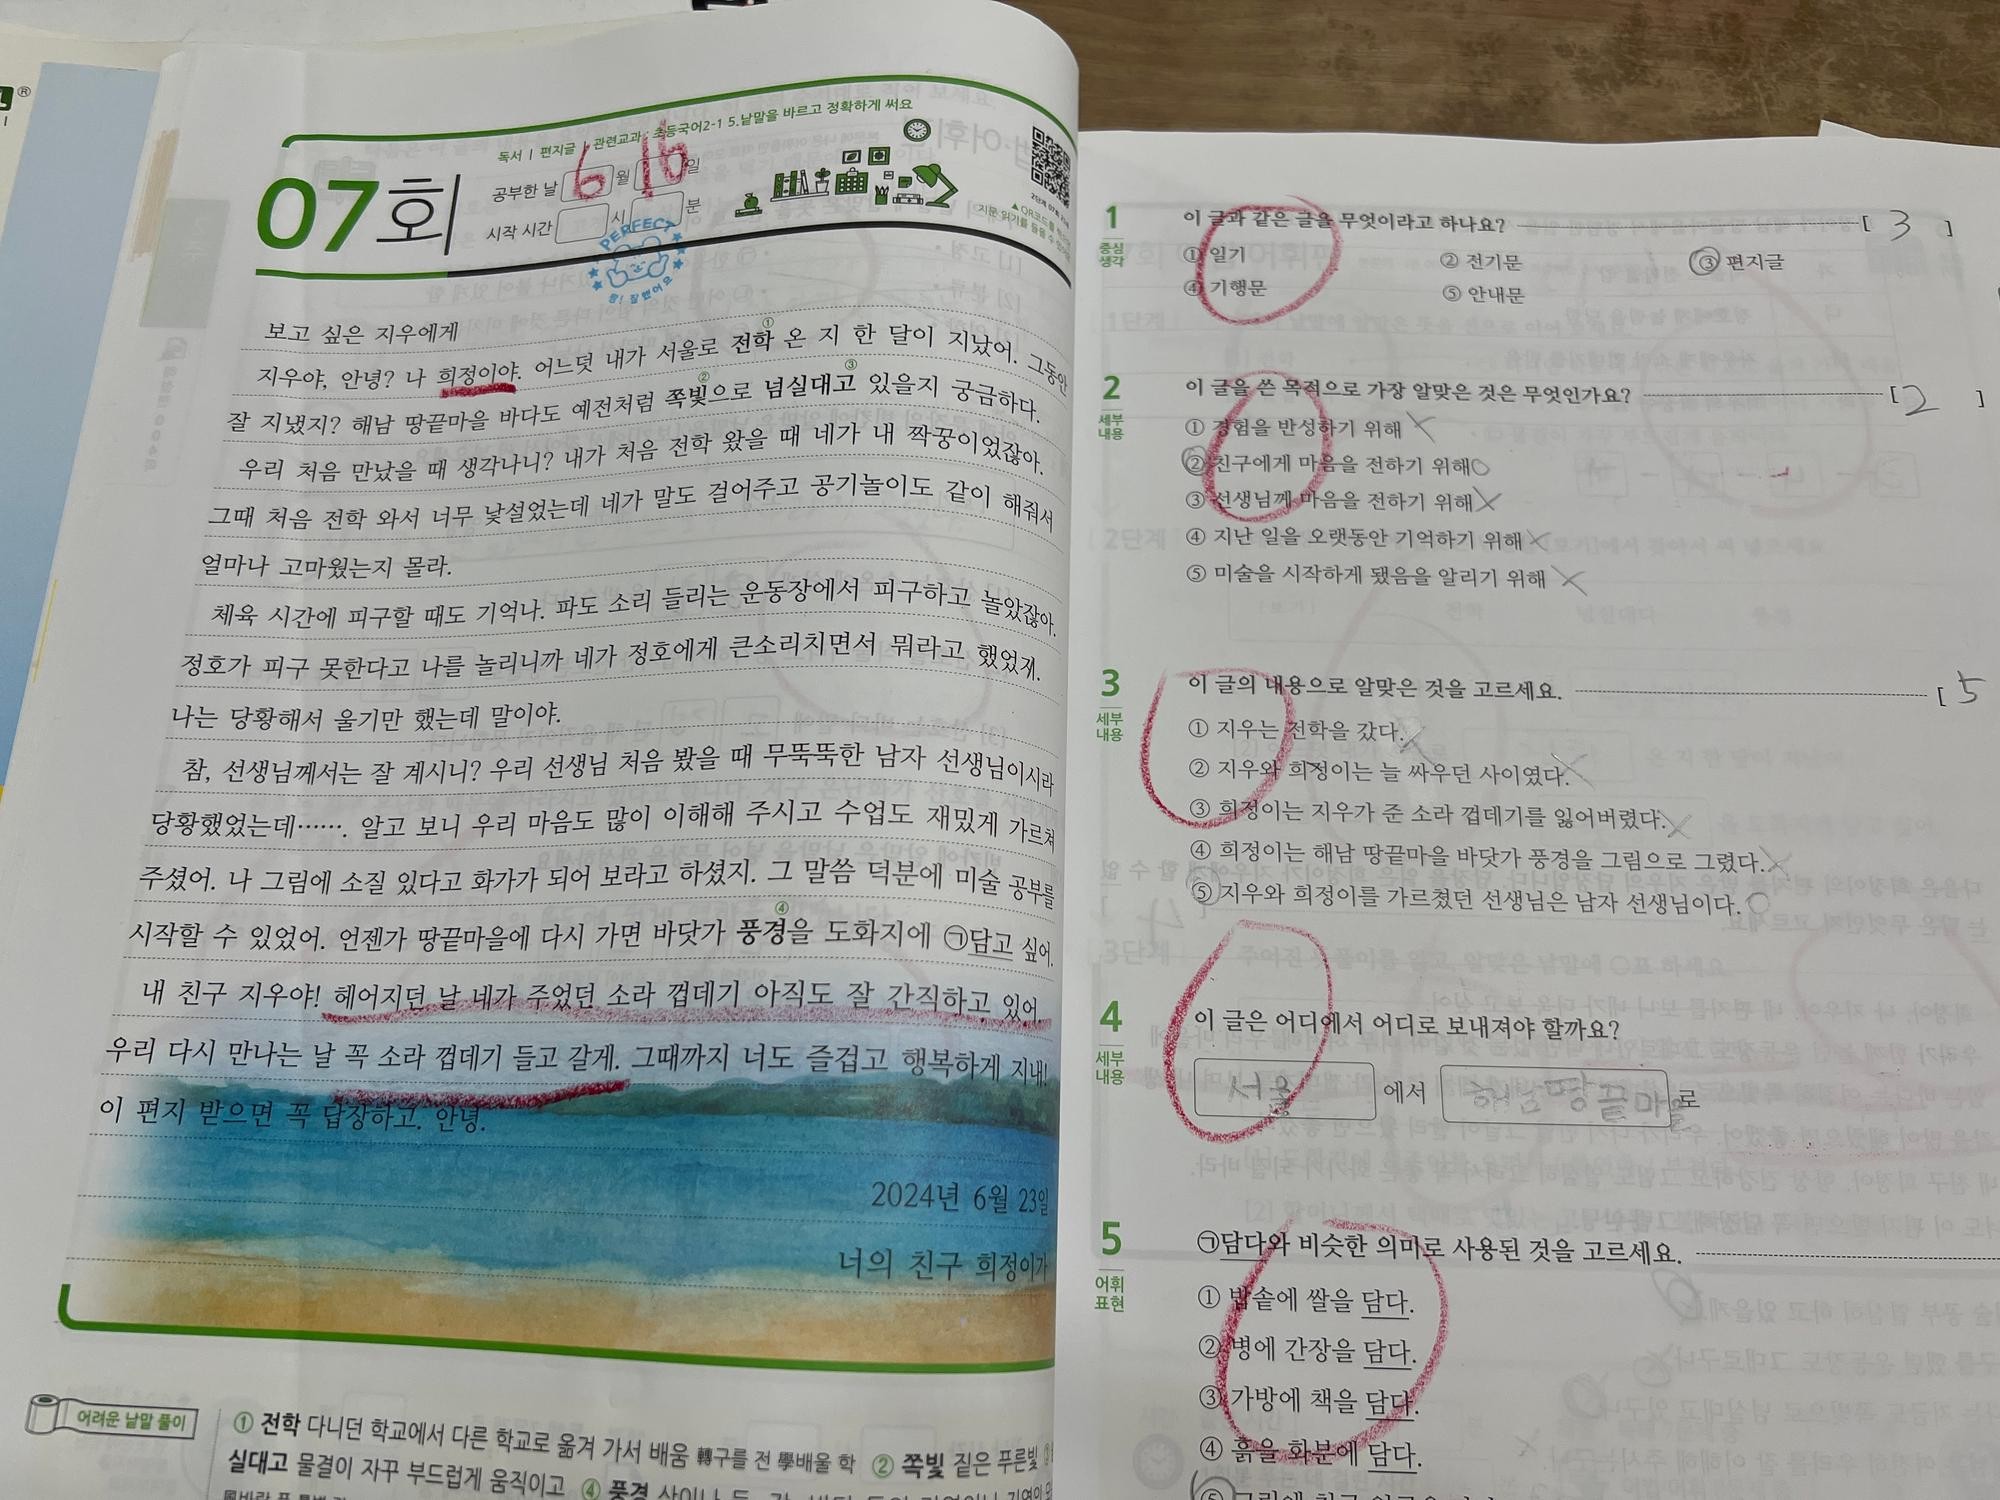 독서 | 편지글 | 관련교과 : 초등국어2-1 5.낱말을 바르고 정확하게 써요
07회
공부한 날 6 월 16 일
시작 시간 시 분
PERFECT
참! 잘했어요
보고 싶은 지우에게
지우야, 안녕? 나 희정이야. 어느덧 내가 서울로 ①전학 온 지 한 달이 지났어. 그동안
잘 지냈지? 해남 땅끝마을 바다도 예전처럼 ②쪽빛으로 ③넘실대고 있을지 궁금하다.
우리 처음 만났을 때 생각나니? 내가 처음 전학 왔을 때 네가 내 짝꿍이었잖아.
그때 처음 전학 와서 너무 낯설었는데 네가 말도 걸어주고 공기놀이도 같이 해줘서
얼마나 고마웠는지 몰라.
체육 시간에 피구할 때도 기억나. 파도 소리 들리는 운동장에서 피구하고 놀았잖아.
정호가 피구 못한다고 나를 놀리니까 네가 정호에게 큰소리치면서 뭐라고 했었지.
나는 당황해서 울기만 했는데 말이야.
참, 선생님께서는 잘 계시니? 우리 선생님 처음 봤을 때 무뚝뚝한 남자 선생님이시라
당황했었는데……. 알고 보니 우리 마음도 많이 이해해 주시고 수업도 재밌게 가르쳐
주셨어. 나 그림에 소질 있다고 화가가 되어 보라고 하셨지. 그 말씀 덕분에 미술 공부를
시작할 수 있었어. 언젠가 땅끝마을에 다시 가면 바닷가 ④풍경을 도화지에 ㉠담고 싶어.
내 친구 지우야! 헤어지던 날 네가 주었던 소라 껍데기 아직도 잘 간직하고 있어.
우리 다시 만나는 날 꼭 소라 껍데기 들고 갈게. 그때까지 너도 즐겁고 행복하게 지내!
이 편지 받으면 꼭 답장하고. 안녕.
2024년 6월 23일
너의 친구 희정이가
어려운 낱말 풀이
① 전학 다니던 학교에서 다른 학교로 옮겨 가서 배움 轉구를 전 學배울 학 ② 쪽빛 짙은 푸른빛
실대고 물결이 자꾸 부드럽게 움직이고 ④ 풍경
1 중심 생각 이 글과 같은 글을 무엇이라고 하나요? [ 3 ]
① 일기 ② 전기문 ③ 편지글
④ 기행문 ⑤ 안내문
2 세부 내용 이 글을 쓴 목적으로 가장 알맞은 것은 무엇인가요? [ 2 ]
① 경험을 반성하기 위해
② 친구에게 마음을 전하기 위해
③ 선생님께 마음을 전하기 위해
④ 지난 일을 오랫동안 기억하기 위해
⑤ 미술을 시작하게 됐음을 알리기 위해
3 세부 내용 이 글의 내용으로 알맞은 것을 고르세요. [ 5
① 지우는 전학을 갔다.
② 지우와 희정이는 늘 싸우던 사이였다.
③ 희정이는 지우가 준 소라 껍데기를 잃어버렸다.
④ 희정이는 해남 땅끝마을 바닷가 풍경을 그림으로 그렸다.
⑤ 지우와 희정이를 가르쳤던 선생님은 남자 선생님이다.
4 세부 내용 이 글은 어디에서 어디로 보내져야 할까요?
서울 에서 해남땅끝마을 로
5 어휘 표현 ㉠담다와 비슷한 의미로 사용된 것을 고르세요.
① 밥솥에 쌀을 담다.
② 병에 간장을 담다.
③ 가방에 책을 담다.
④ 흙을 화분에 담다.